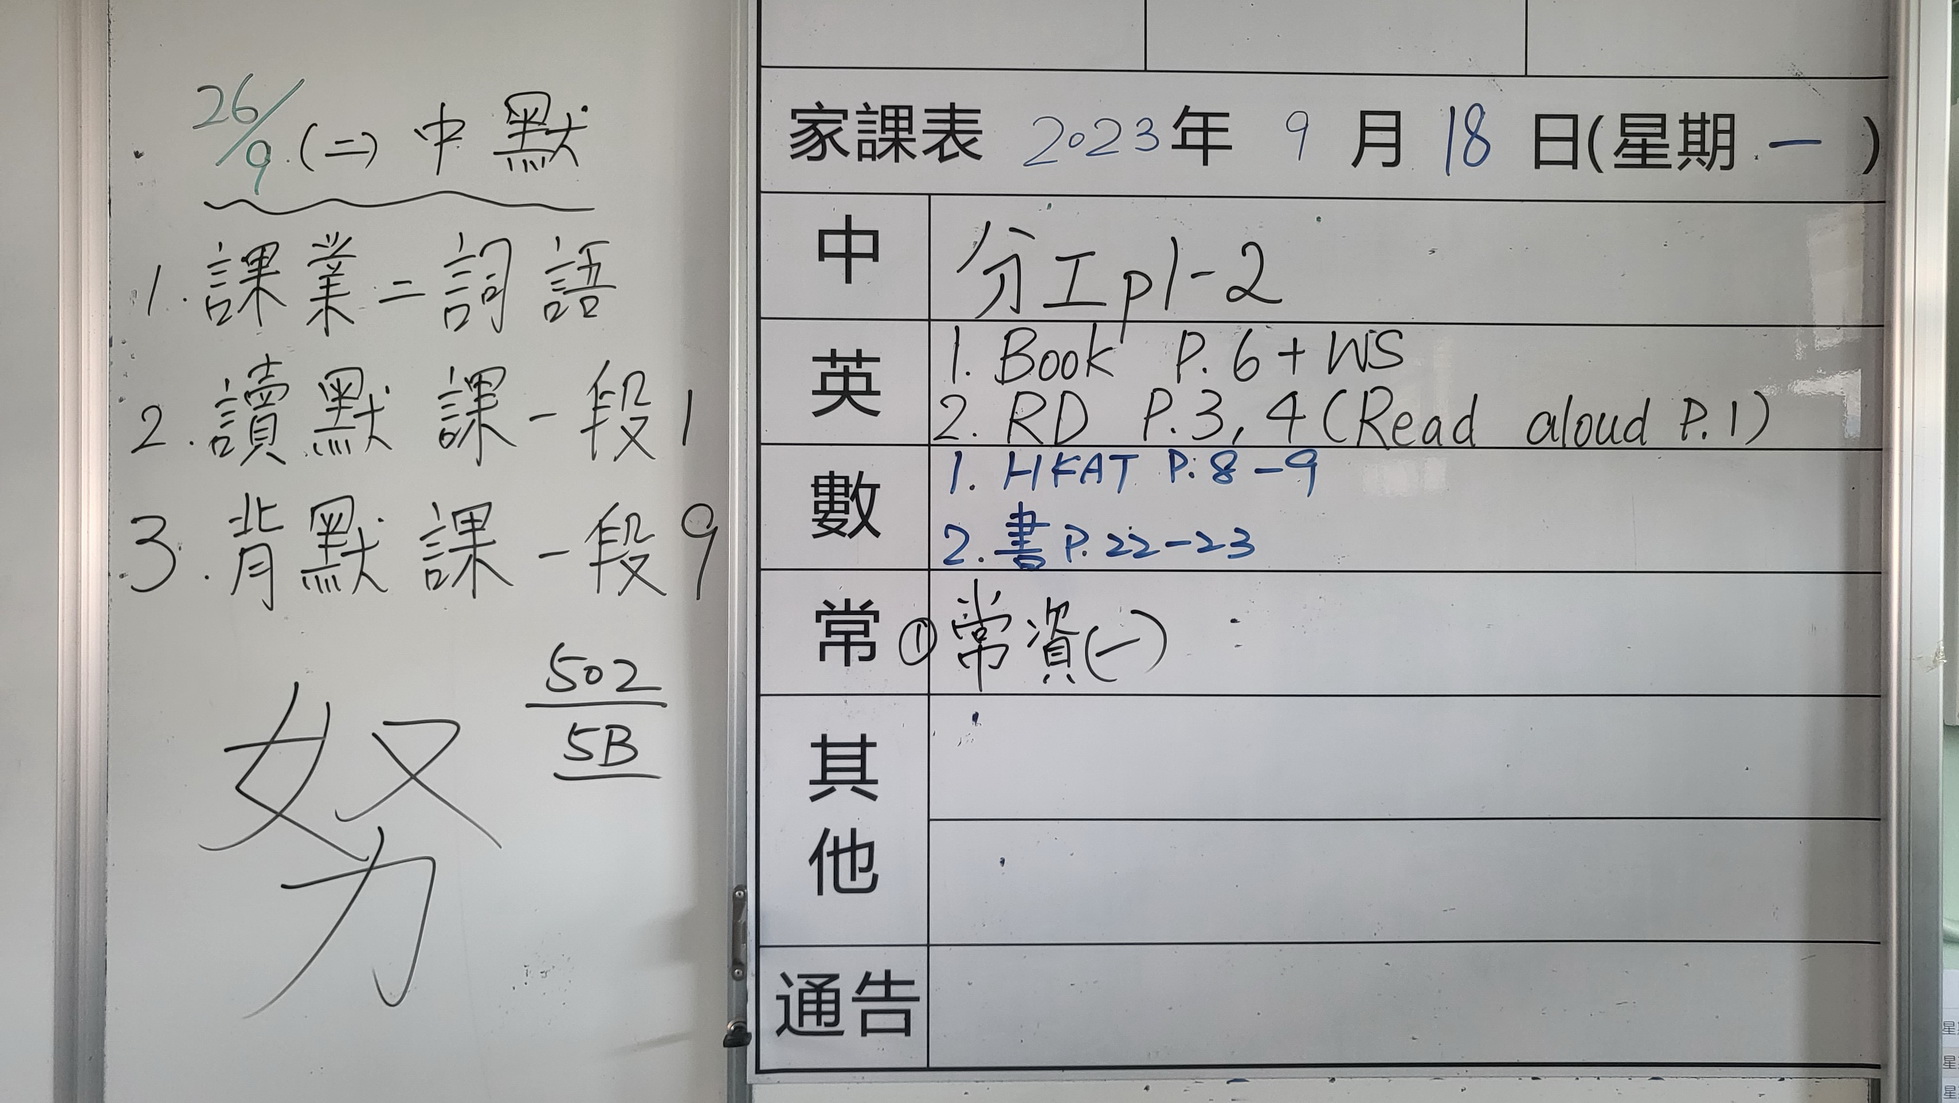 26/9 (二) 中默
1. 課業二詞語
2. 讀默 課一段1
3. 背默 課一段9
502
5B
努
家課表 2023年 9 月 18 日(星期 一 )
中 分工p1-2
英 1. Book P.6 + WS
2. RD P.3, 4 (Read aloud P.1)
數 1. HKAT P.8-9
2. 書 P.22-23
常 ① 常資(一)
其他
通告
星
星
星